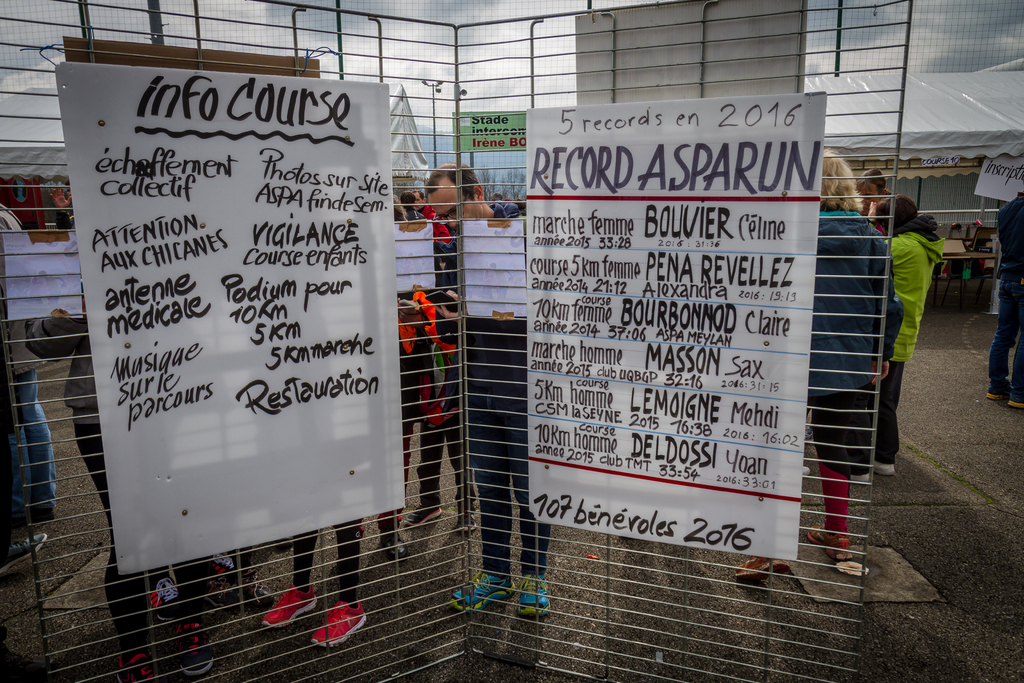 info course
échaffement
collectif
ATTENTION
AUX CHICANES
antenne
médicale
Musique
sur le
parcours
Photos sur site
ASPA fin de Sem.
VIGILANCE
Course enfants
Podium pour
10Km
5Km
5Km marche
Restauration
Stade
intercom
Irène BO
5 records en 2016
RECORD ASPARUN
marche femme BOUVIER Céline
année 2015 33:28 2016: 31:16
course 5km femme PENA REVELLEZ
année 2014 21:12 Alexandra 2016: 19:19
10km course femme BOURBONNOD Claire
année 2014 37:06 ASPA MEYLAN
marche homme MASSON Sax
année 2015 club UGBGP 32:16 2016: 31:15
5Km course homme LEMOIGNE Mehdi
CSM la SEYNE 2015 16:38 2016: 16:02
10Km course homme DELDOSSI Yoan
année 2015 club TMT 33:54 2016: 33:01
107 bénévoles 2016
COURSE 10
Inscripti